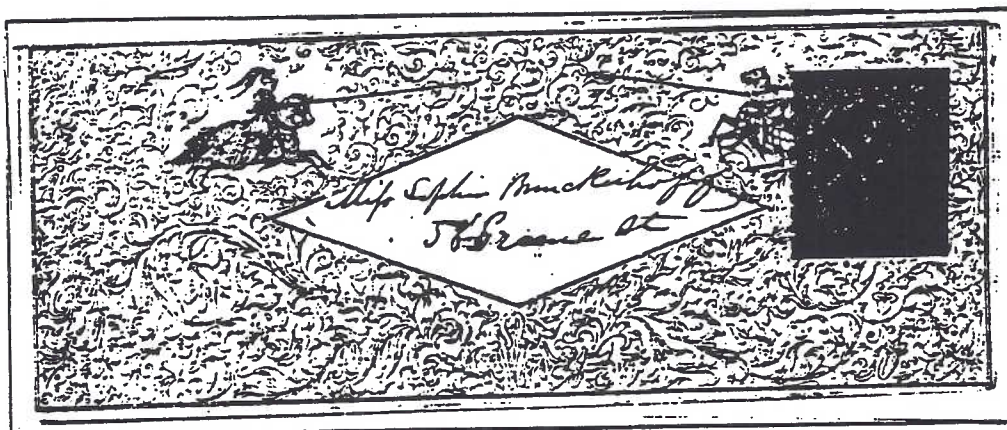 Miss Sophia Brinckerhoff
Greene St